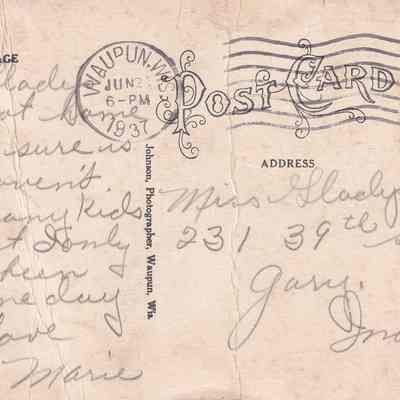 AGE
WAUPUN, WIS
JUN
6-PM
1937
POST CARD
Glady
at home
sure is
aven't
any kids
t I only
when I
one day
Love
Marie
Johnson, Photographer, Waupun, Wis.
ADDRESS
Miss Glady
231 39th
Gary.
Ind